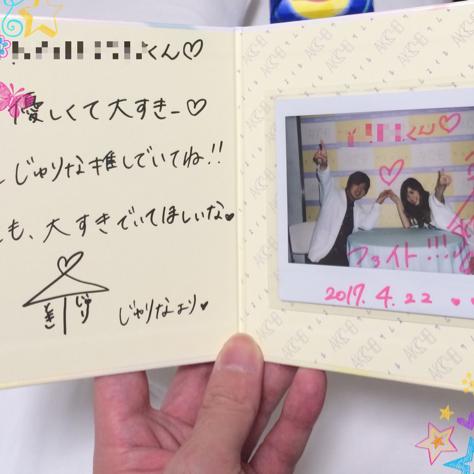 くん♡
優しくて大すきー♡
じゅりな推しでいてね!!
も、大すきでいてほしいな♥
じゅりなより♥
くん♡
ファイト!!!
2017.4.22